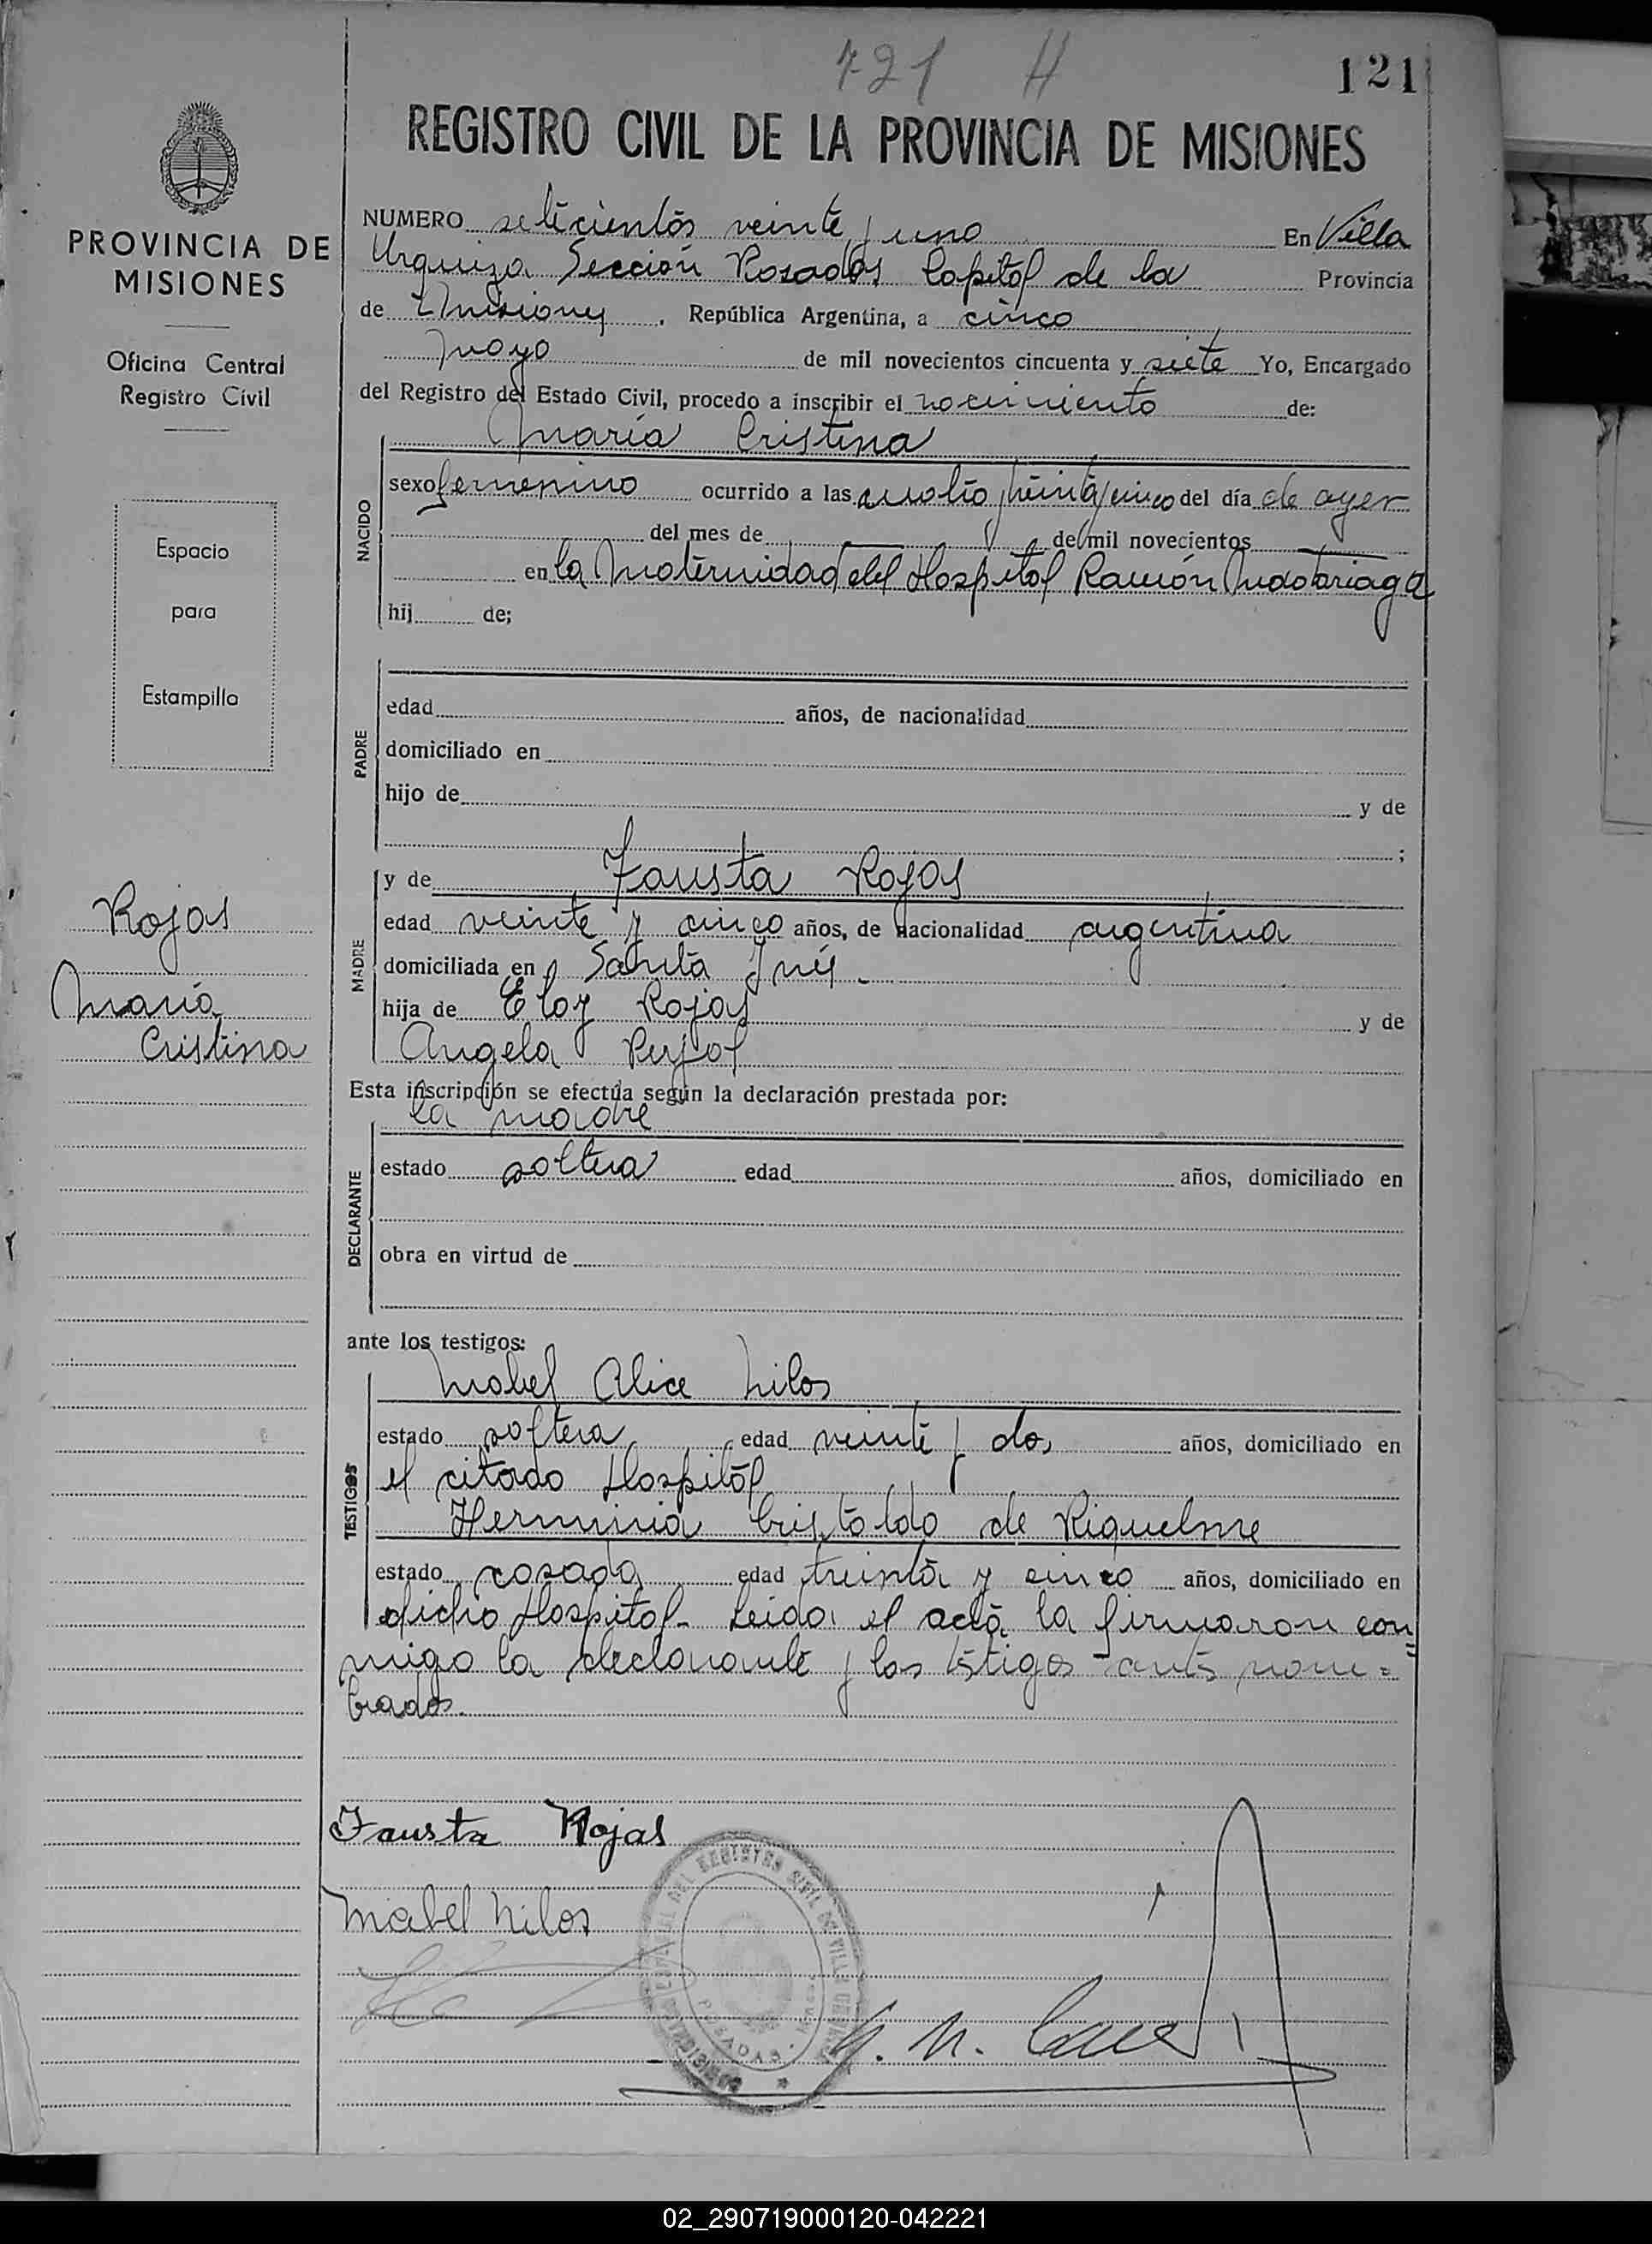 721 H
121
REGISTRO CIVIL DE LA PROVINCIA DE MISIONES
PROVINCIA DE
MISIONES
Oficina Central
Registro Civil
Espacio
para
Estampilla
Rojas
María
Cristina
NUMERO setecientos veinte y uno En Villa
Urquiza Sección Posadas Capital de la Provincia
de Misiones, República Argentina, a cinco
mayo de mil novecientos cincuenta y siete Yo, Encargado
del Registro del Estado Civil, procedo a inscribir el nacimiento de:
María Cristina
NACIDO
sexo femenino ocurrido a las cuatro y treinta y cinco del día de ayer
del mes de de mil novecientos
en la Maternidad del Hospital Ramón Madariaga
hij de;
PADRE
edad años, de nacionalidad
domiciliado en
hijo de y de
;
MADRE
y de Fausta Rojas
edad veinte y cinco años, de nacionalidad argentina
domiciliada en Santa Inés.
hija de Eloy Rojas y de
Angela
Esta inscripción se efectúa según la declaración prestada por:
la madre
DECLARANTE
estado soltera edad años, domiciliado en
obra en virtud de
ante los testigos:
Mabel Alice Nilos
TESTIGOS
estado soltera edad veinte y dos años, domiciliado en
el citado Hospital
Herminia Cristaldo de Riquelme
estado casada edad treinta y cinco años, domiciliado en
dicho Hospital- Leida el acta la firmaron con=
migo la declarante y los testigos antes nom=
brados.
Fausta Rojas
Mabel Nilos
02_290719000120-042221